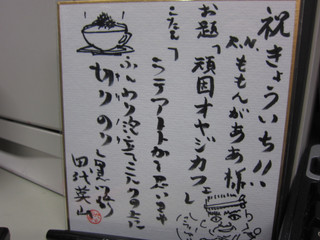 祝きょういち!!
R.N. ももんがああ様
お題「頑固オヤジカフェ」
ラテアートかと思いきや
ふんわり泡立てミルクの上に
切りのり